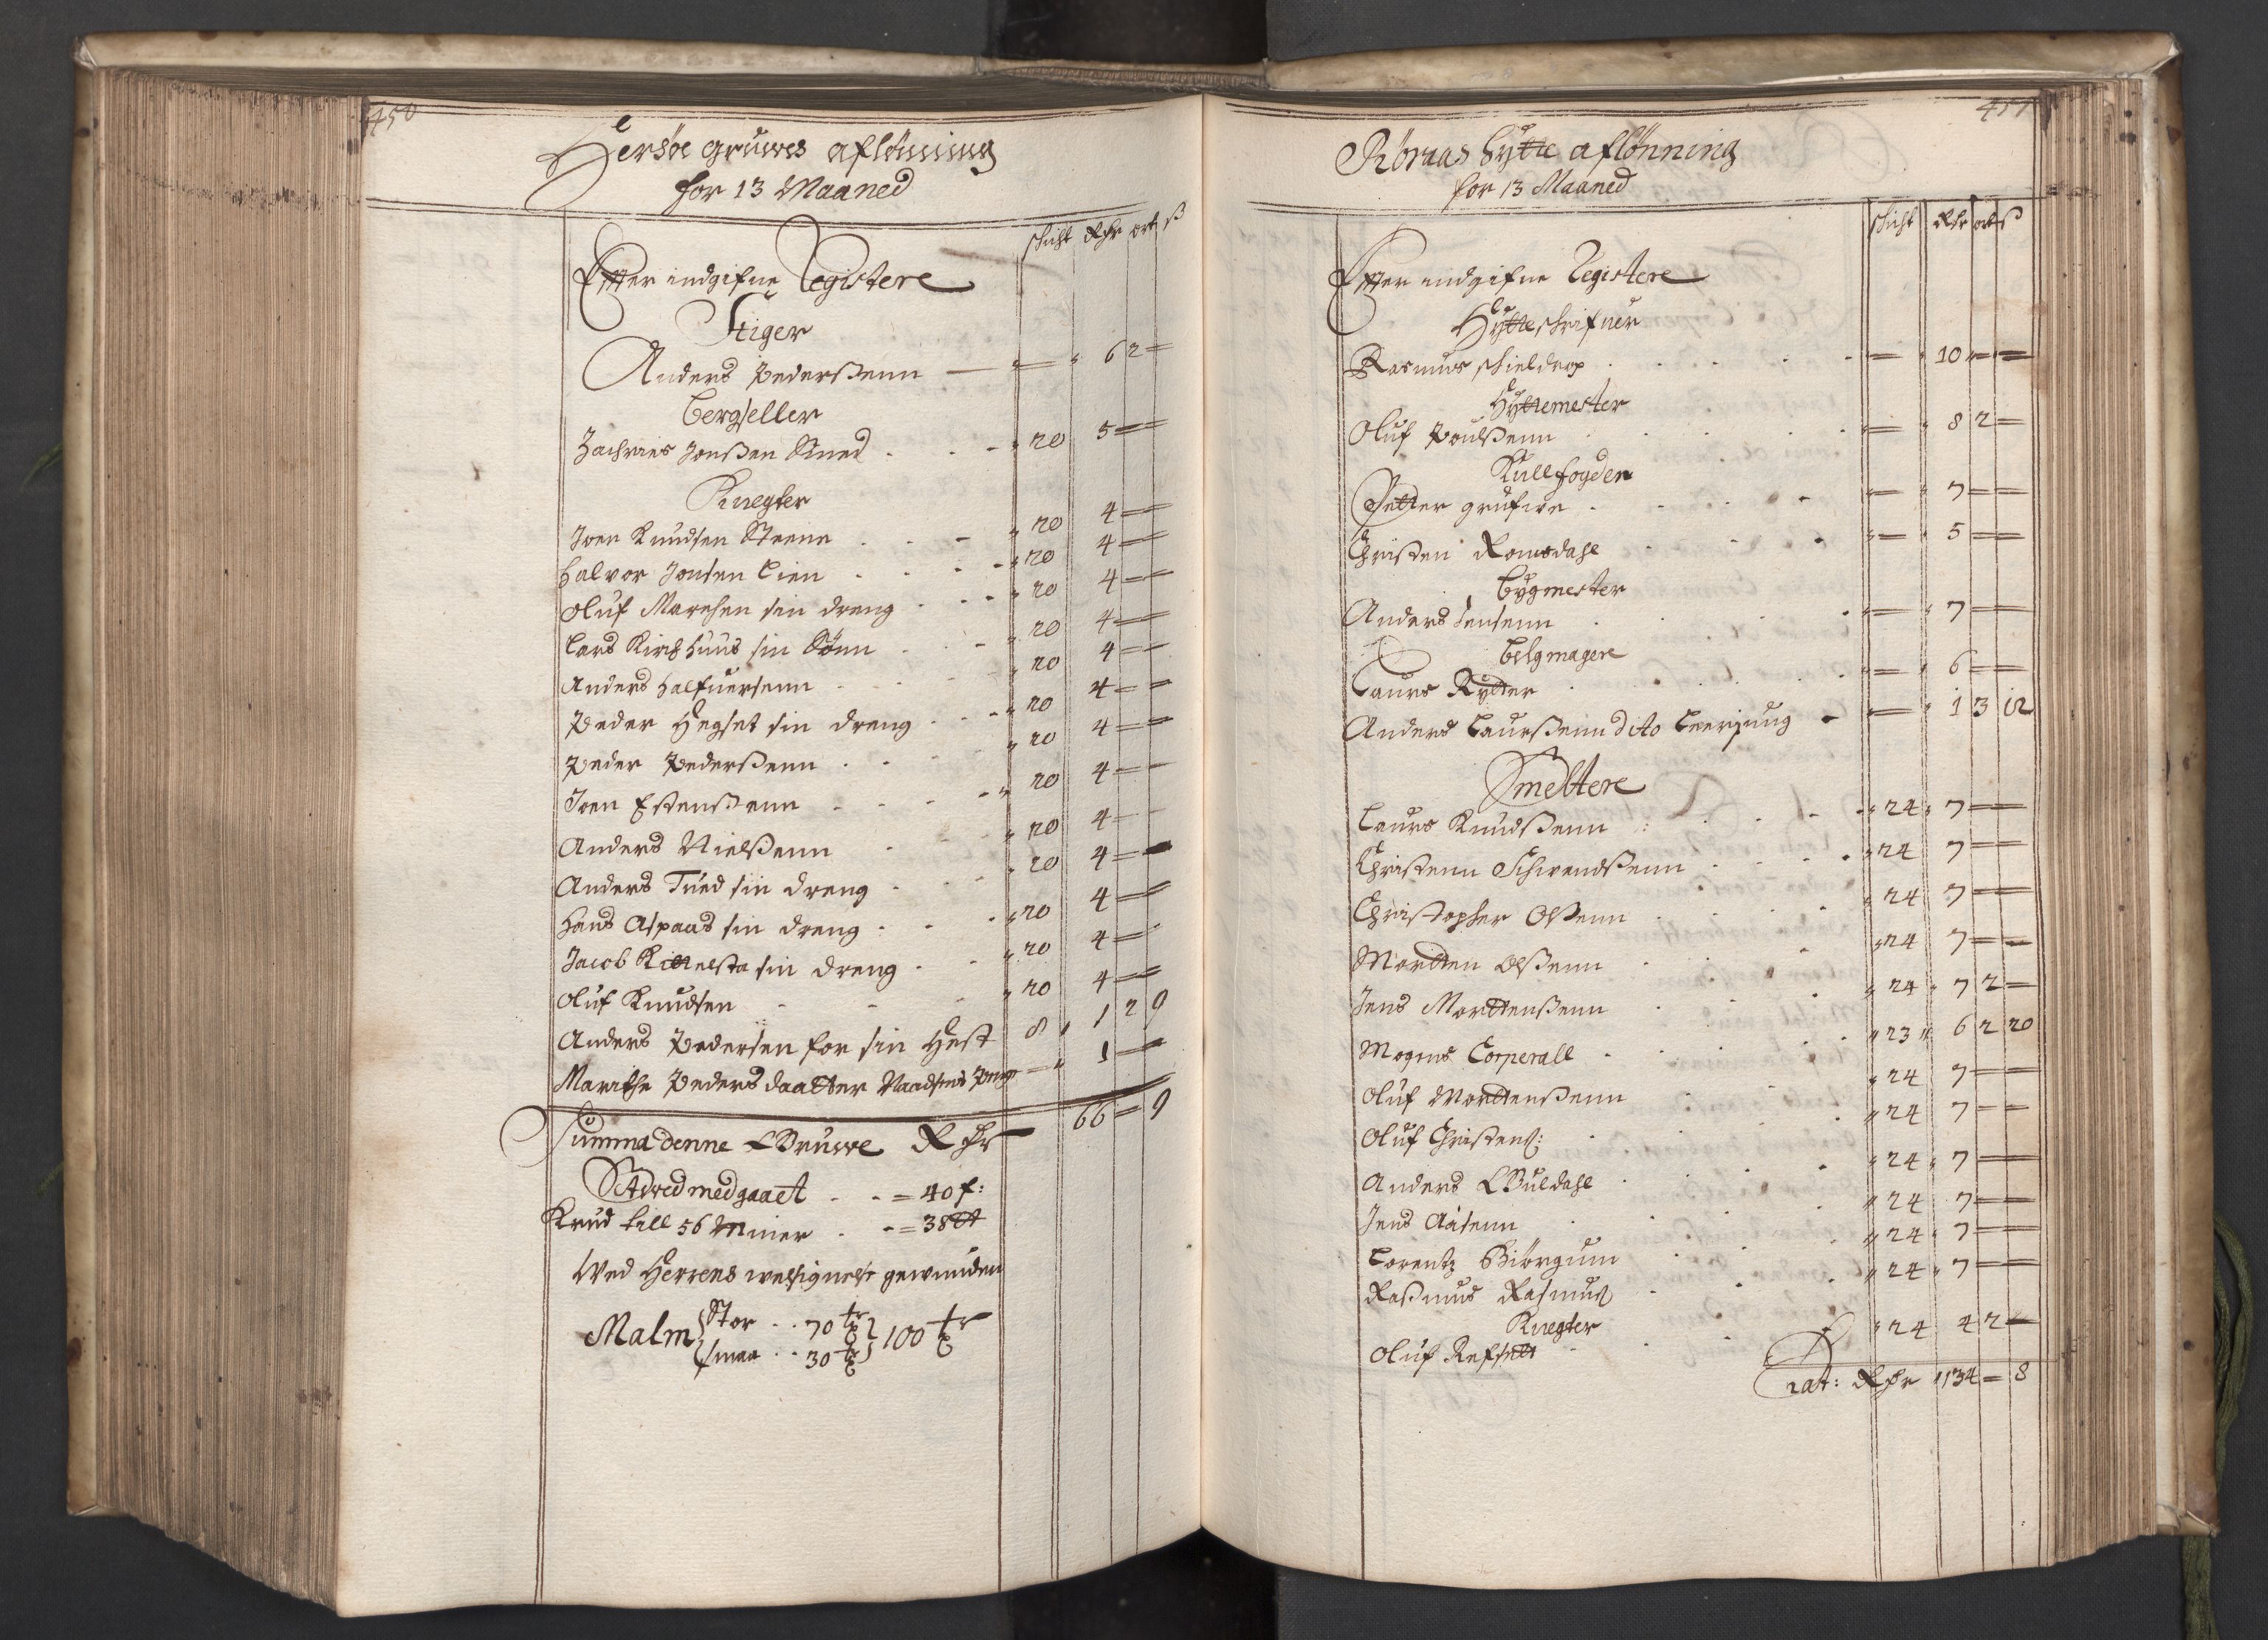 450
Hersøe gruwes aflønning
for 13 Maaned
schicht Rdr ort ß
Efter indgifne Registere
Stiger
Anders Pederßenn — = 6 2 =
bergseller
Zachries Jonßen Smed . . 20 5 = =
Knegter
Iver Knudsen Steene . . 20 4 = =
Halvor Jonsen Lien . . 20 4 = =
Oluf Marchen sin dreng . . 20 4 = =
Lars Kirchhuus sin Sønn . . 20 4 = =
Anders Halfuersenn . . 20 4 = =
Peder Hegset sin dreng . . 20 4 = =
Peder Pederßenn . . 20 4 = =
Iver Estensßenn . . 20 4 = =
Anders Nielßenn . . 20 4 = =
Anders Tued sin dreng . . 20 4 = =
Hans Aspaas sin dreng . . 20 4 = =
Jacob sin dreng . . 20 4 = =
Oluf Knudsen . . 20 4 = =
Anders Pedersen for sin Hest 8 1 2 9
Marithe Peders daatter = 1 = =
Summa denne Gruwe Rdr 66 = 9
Sedwed medgaaet . . = 40 f:
Krud till 56 Miner . . = 38 tt
Wed Herrens welsignelse gewunden
Malm Stor . . 70 tr
smaa . . 30 tr 100 tr
451
Røraas hytte aflønning
for 13 Maaned
schicht Rdr ort ß
Efter indgifne Registere
Hytteschrifuer
Rasmus schieldrop . . = 10 = =
Hyttemester
Oluf Poulßenn . . = 8 2 =
Kullfogder
Petter grufwe . . = 7 = =
Christen Romsdahl . . = 5 = =
bygmester
Anders Jensenn . . = 7 = =
belgmagere
Laurs Rytter . . = 6 = =
Anders Laurßenn dito Leerjung = 1 3 12
Smeltere
Laurs Knudßenn . . 24 7 = =
Christenn Schwendßenn . . 24 7 = =
Christopher Olßenn . . 24 7 = =
Mortten Olßenn . . 24 7 = =
Jens Morttenßenn . . 24 7 2 =
Mogens Corperall . . 23 6 2 20
Oluf Morttenßenn . . 24 7 = =
Oluf Christens: . . 24 7 = =
Anders Guldahl . . 24 7 = =
Jens Aasenn . . 24 7 = =
Lorentz Biörgum . . 24 7 = =
Raßmus Rasmuß . . 24 7 = =
Knegter
Oluf Refsett . . 24 4 2 =
Lat: Rdr 134 = 8